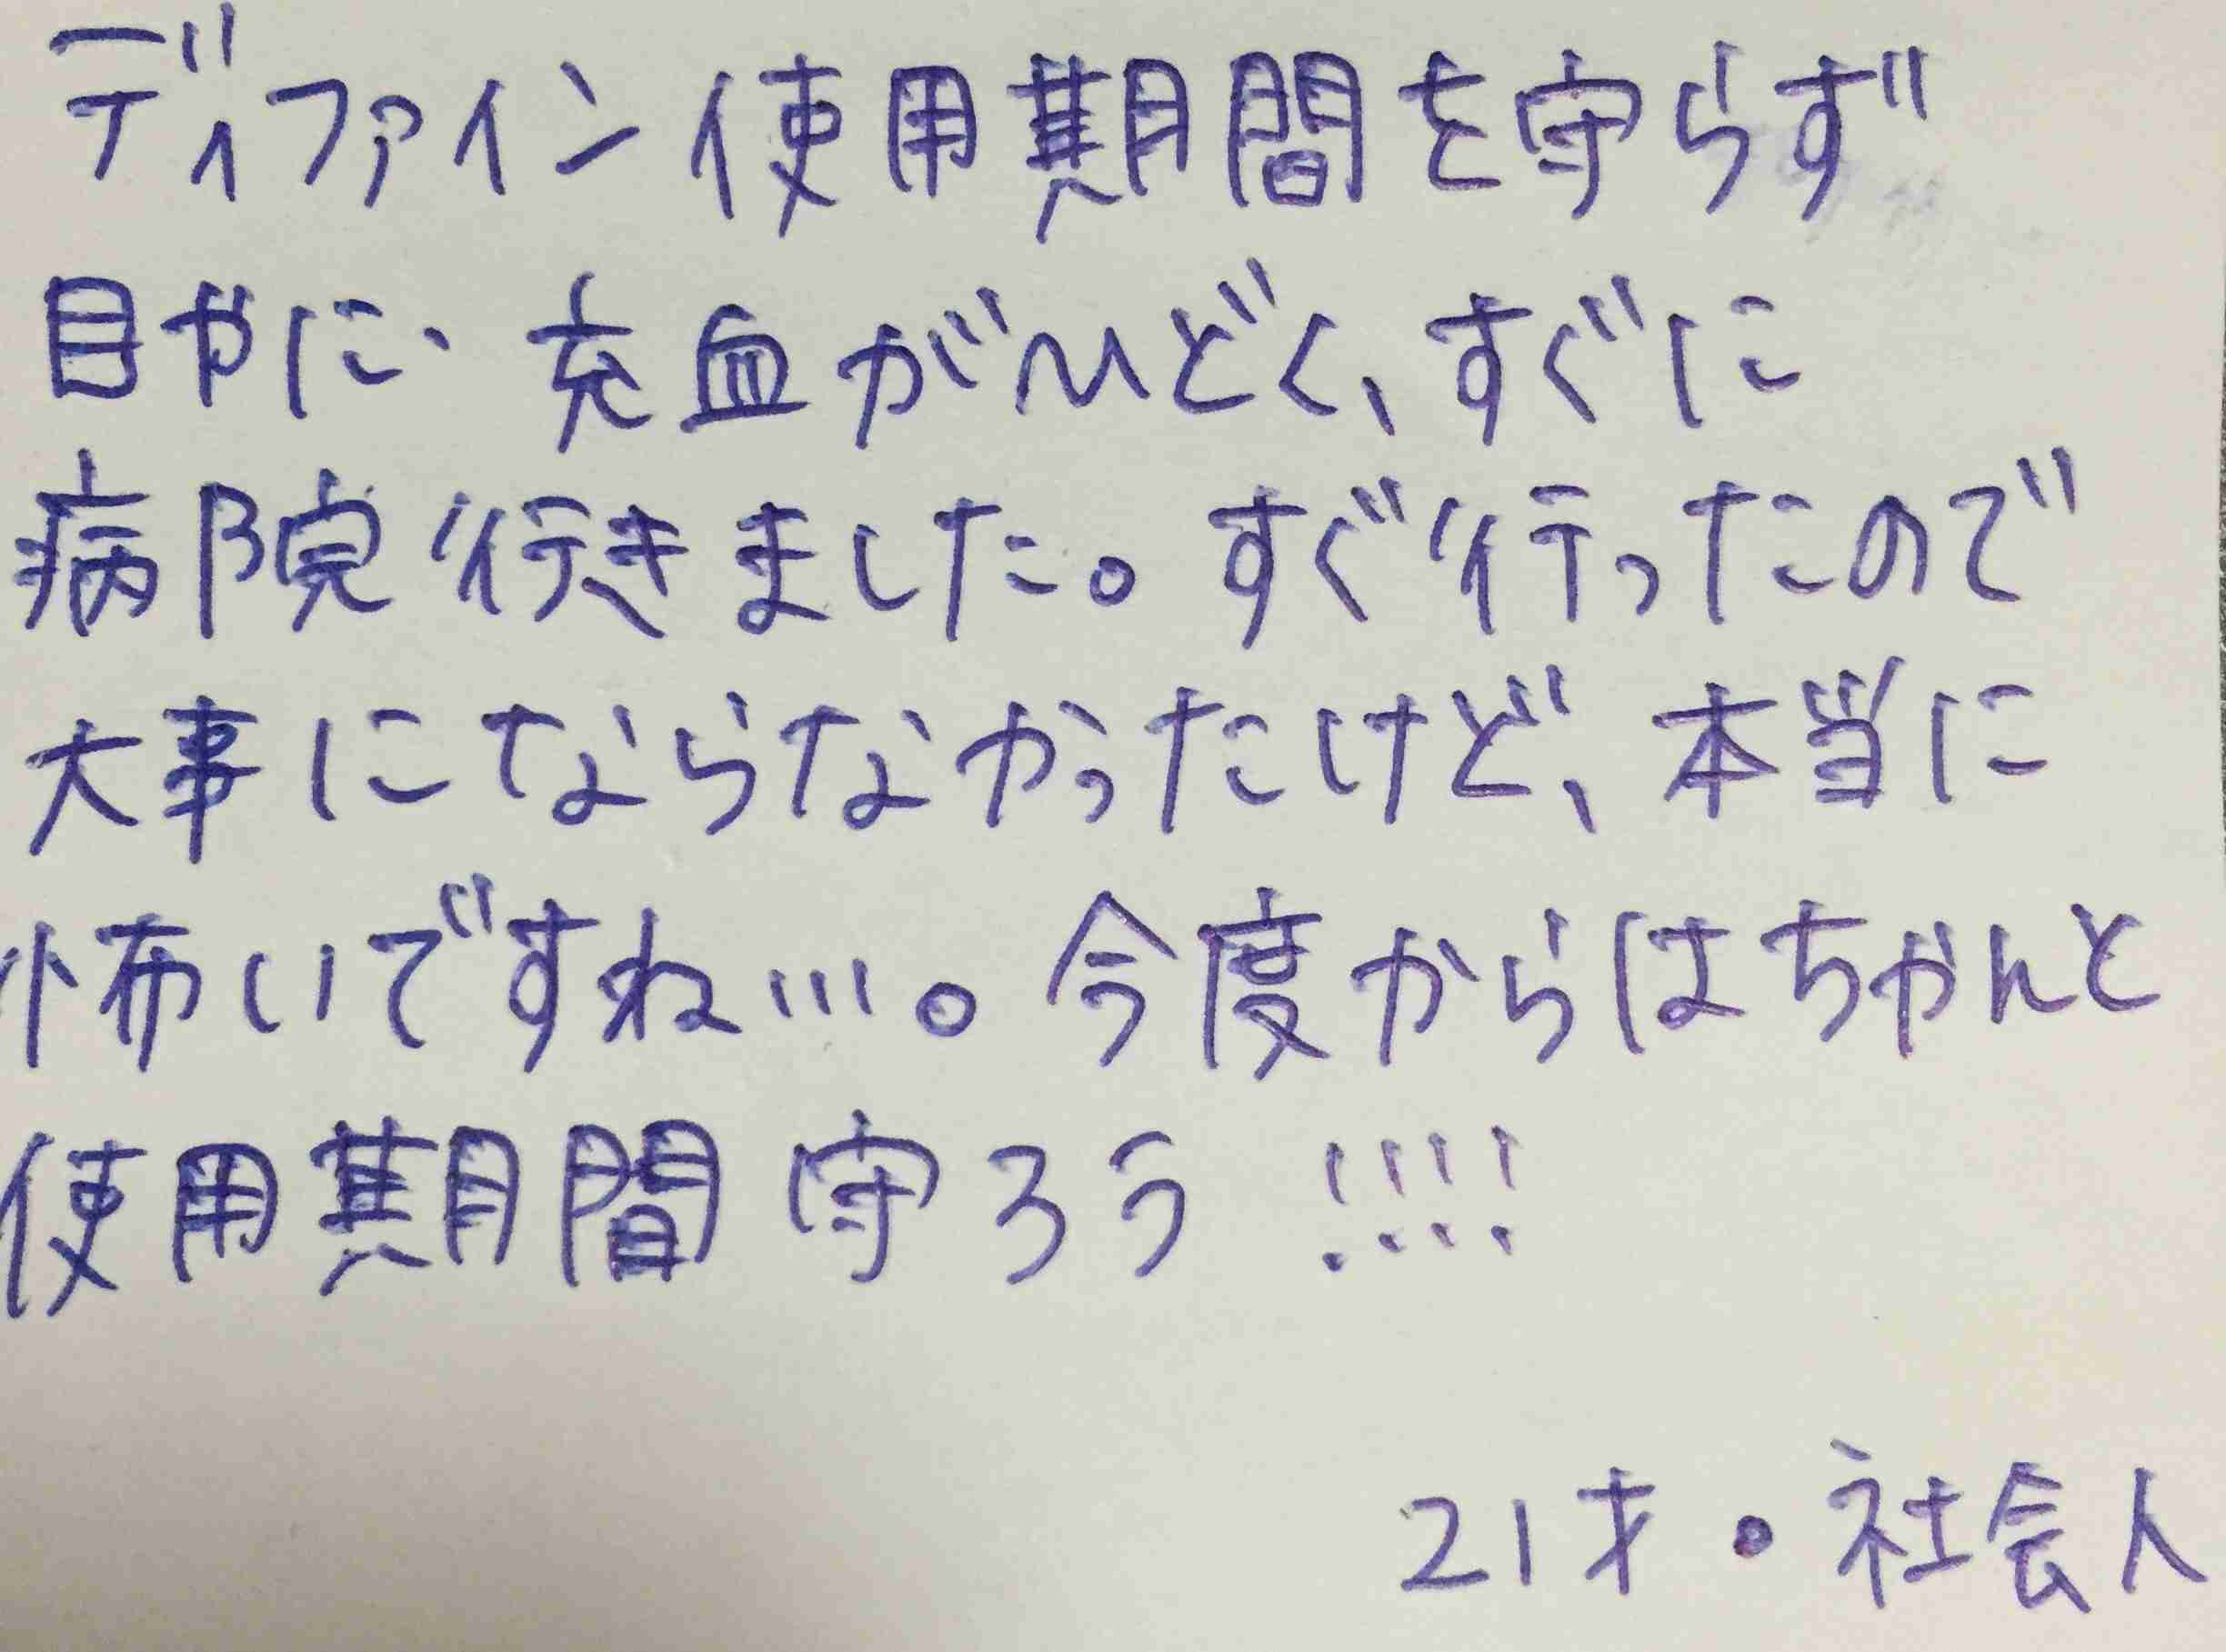 ディファイン使用期間を守らず
目やに・充血がひどく、すぐに
病院行きました。すぐ行ったので
大事にならなかったけど、本当に
怖いですね…。今度からはちゃんと
使用期間守ろう!!!!
21才・社会人